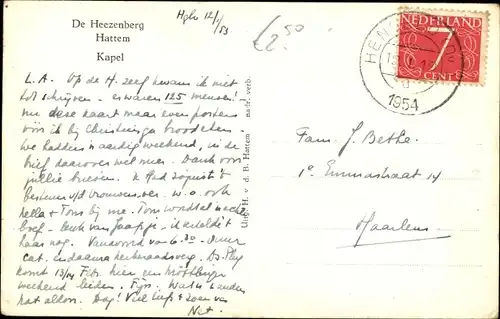 De Heezenberg
Hattem
Kapel
Hglo 12/1/53
€2,50
NEDERLAND
7
CENT
HEN
1954
L.A. Op de H. zelf kwam ik niet
tot schrijven - er waren 125 mensen!
nu deze kaart maar even posten
vóór ik bij Christinga broodeten.
We hadden 'n aardig weekend, in de
brief daarover wel meer. Dank voor
jullie brieven. Ik had zojuist 't
bestuur v/d vrouwenver. w.o. ook
hella + Tons bij me.
boef - leuk van Jaapje - ik
haar nog. Vanavond va 6.30
cat. en daarna kerkeraadsverg. Ds.
komt 13/14 Febr. hier een
weekend leiden. Fijn. Wat 'n
nat allon. Dag! Veel liefs + zoen van
Net.
Uitg. H. v. d. B. Hattem nadr. verb.
Fam. J. Bethe.
1e Emmastraat 14
Haarlem